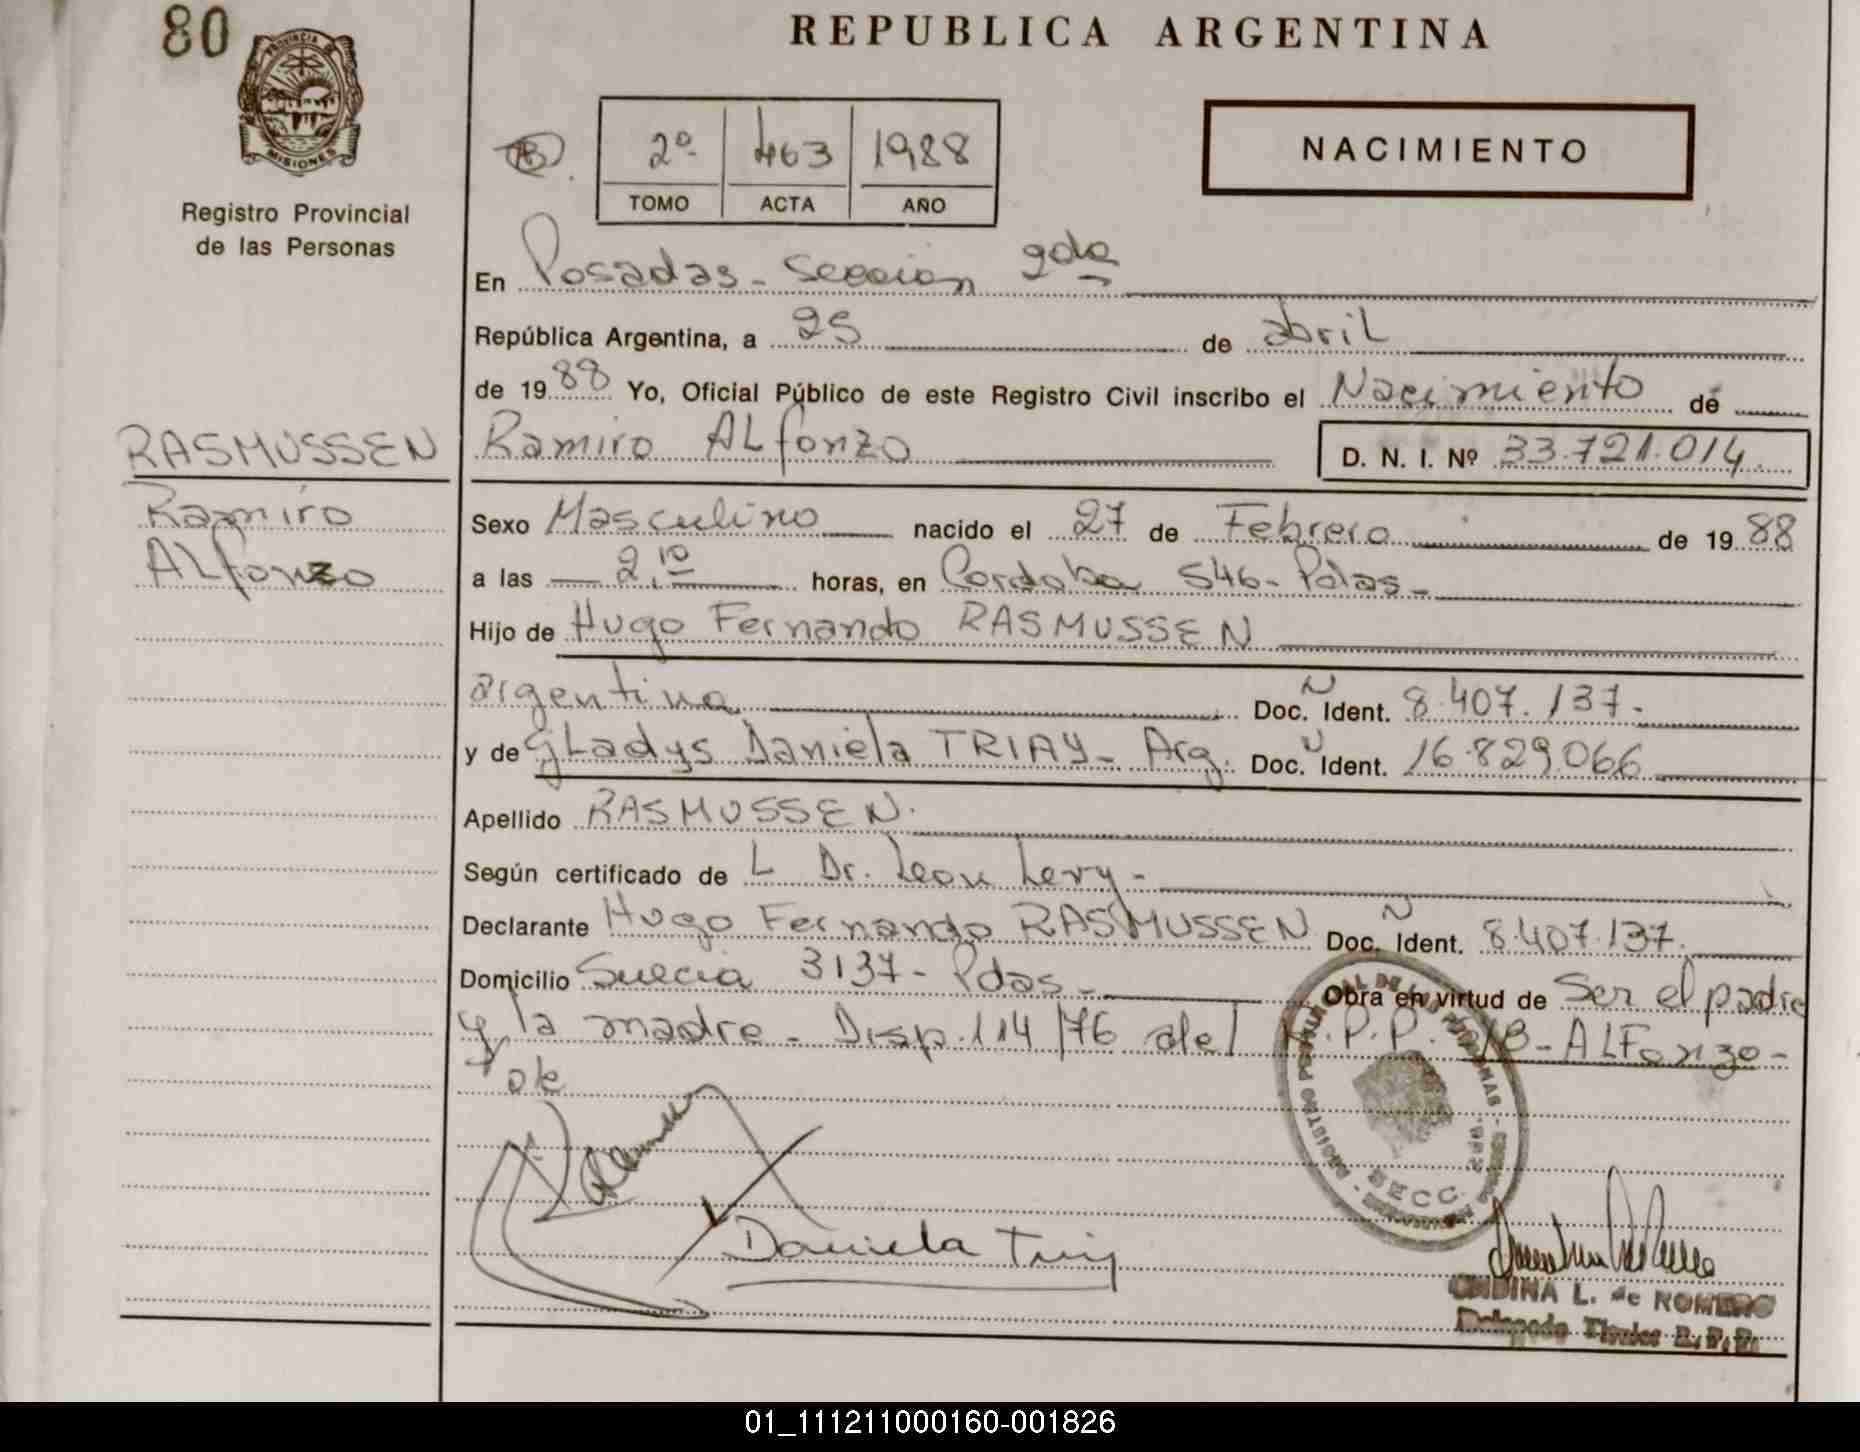 80
REPUBLICA ARGENTINA
PROVINCIA DE
MISIONES
Registro Provincial
de las Personas
2º 463 1988
TOMO ACTA AÑO
NACIMIENTO
En Posadas - Seccion 2da
República Argentina, a 25 de abril
de 1988 Yo, Oficial Público de este Registro Civil inscribo el Nacimiento de
RASMUSSEN
Ramiro
ALfonzo
Ramiro ALfonzo D. N. I. Nº 33.721.014
Sexo Masculino nacido el 27 de Febrero de 1988
a las 2,10 horas, en Cordoba 546 - Pdas -
Hijo de Hugo Fernando RASMUSSEN
argentina Doc. Ident. 8.407.137.-
y de GLadys Daniela TRIAY - Arg. Doc. Ident. 16.829.066
Apellido RASMUSSEN.
Según certificado de L Dr. Leon Levy -
Declarante Hugo Fernando RASMUSSEN Doc. Ident. 8.407.137.
Domicilio Suecia 3137 - Pdas - Obra en virtud de Ser el padre
y la madre - Disp. 114/76 del P.P. - ALFonzo -
Daniela
ONDINA L. de ROMERO
Delegado Titular R.P.P.
01_111211000160-001826